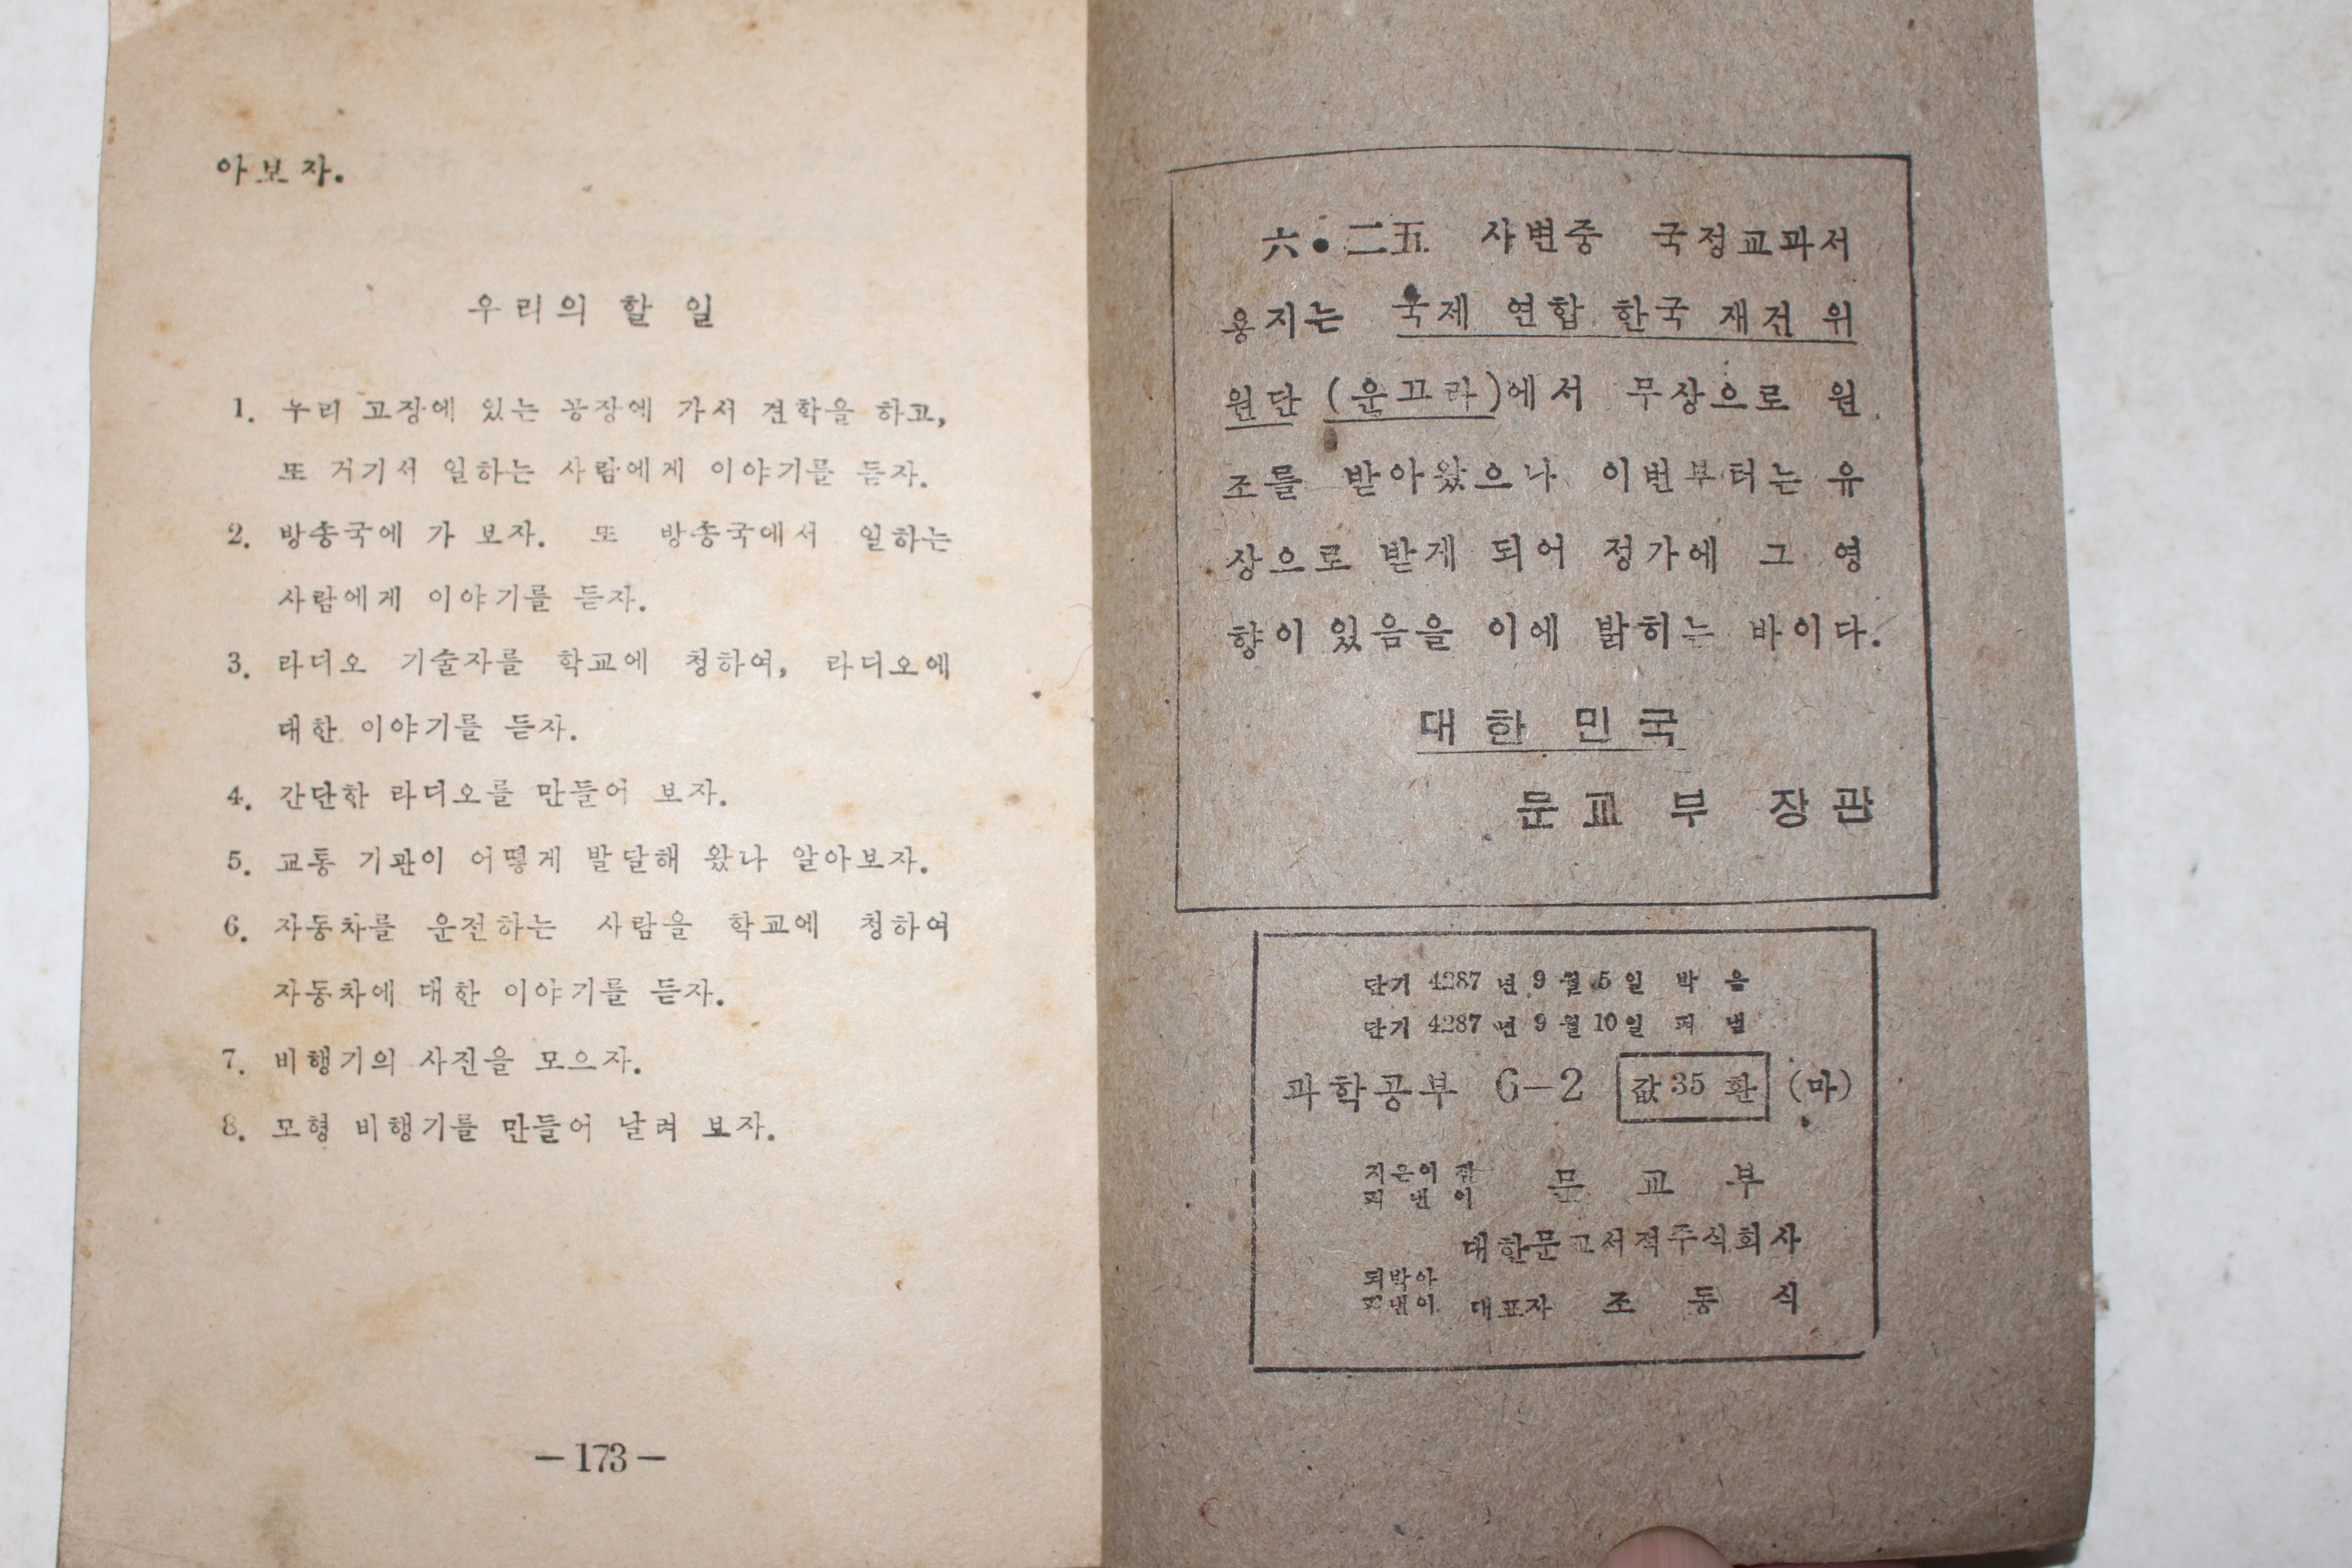 아보자.
우리의 할 일
1. 우리 고장에 있는 공장에 가서 견학을 하고,
또 거기서 일하는 사람에게 이야기를 듣자.
2. 방송국에 가 보자. 또 방송국에서 일하는
사람에게 이야기를 듣자.
3. 라디오 기술자를 학교에 청하여, 라디오에
대한 이야기를 듣자.
4. 간단한 라디오를 만들어 보자.
5. 교통 기관이 어떻게 발달해 왔나 알아보자.
6. 자동차를 운전하는 사람을 학교에 청하여
자동차에 대한 이야기를 듣자.
7. 비행기의 사진을 모으자.
8. 모형 비행기를 만들어 날려 보자.
— 173 —
六•二五 사변중 국정교과서
용지는 국제 연합 한국 재건 위
원단 (운끄라)에서 무상으로 원
조를 받아왔으나 이번부터는 유
상으로 받게 되어 정가에 그 영
향이 있음을 이에 밝히는 바이다.
대한 민국
문교부 장관
단기 4287 년 9 월 5 일 박음
단기 4287 년 9 월 10일 펴냄
과학공부 6-2 값 35 환 (마)
지은이 겸
펴낸이 문교부
대한문교서적주식회사
되박아
펴낸이 대표자 조동식